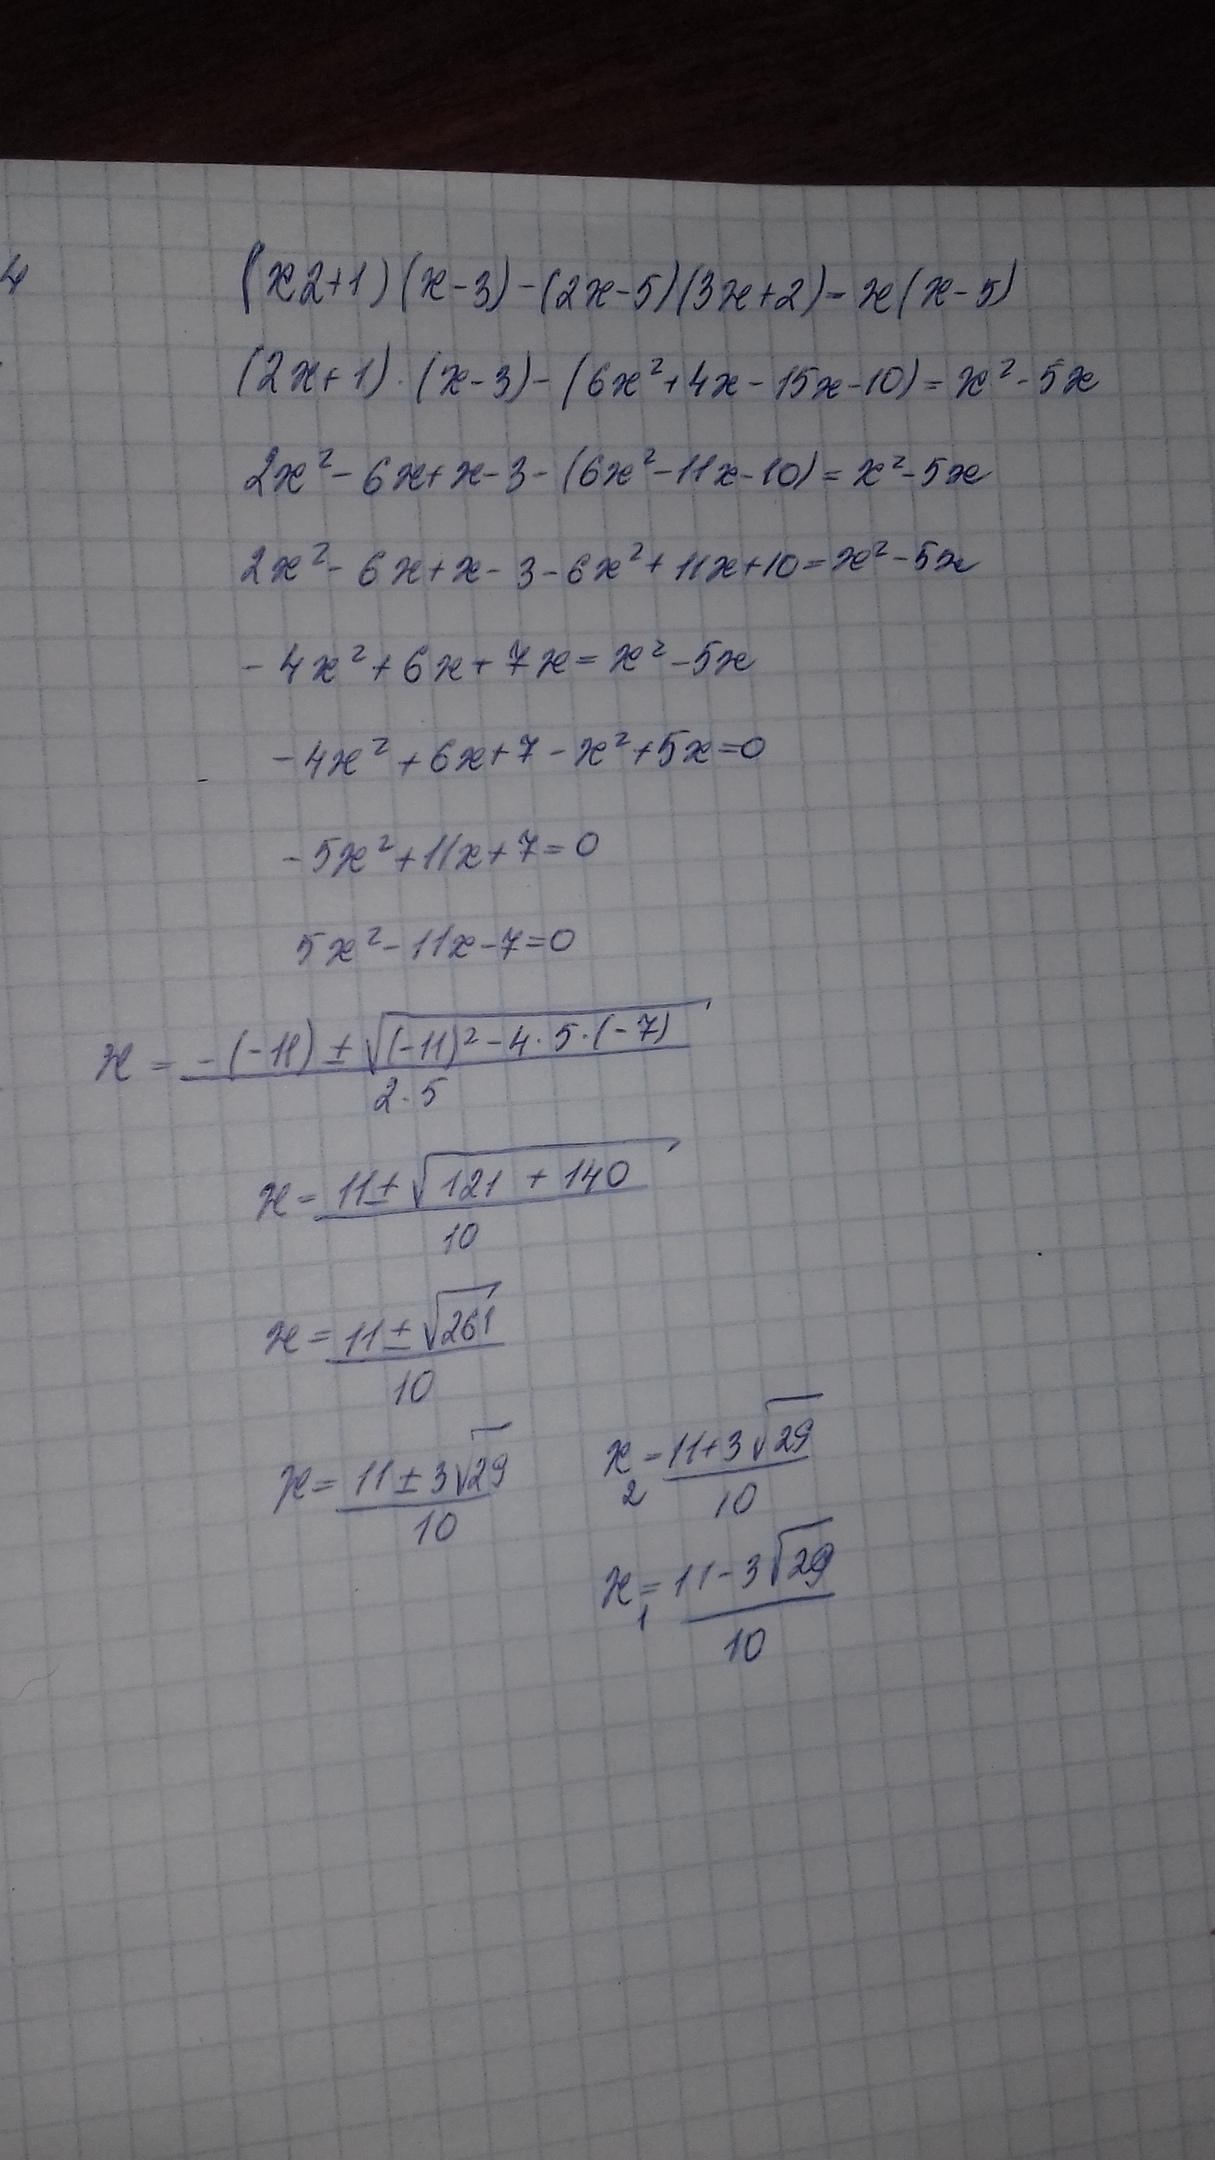 4
(x2+1)(x-3)-(2x-5)(3x+2)=x(x-5)
(2x+1)·(x-3)-(6x²+4x-15x-10)=x²-5x
2x²-6x+x-3-(6x²-11x-10)=x²-5x
2x²-6x+x-3-6x²+11x+10=x²-5x
-4x²+6x+7x=x²-5x
-4x²+6x+7-x²+5x=0
-5x²+11x+7=0
5x²-11x-7=0
x=\frac{-(-11)±\sqrt{(-11)²-4·5·(-7)}}{2·5}
x=\frac{11±\sqrt{121+140}}{10}
x=\frac{11±\sqrt{261}}{10}
x=\frac{11±3\sqrt{29}}{10}
x₂=\frac{11+3\sqrt{29}}{10}
x₁=\frac{11-3\sqrt{29}}{10}